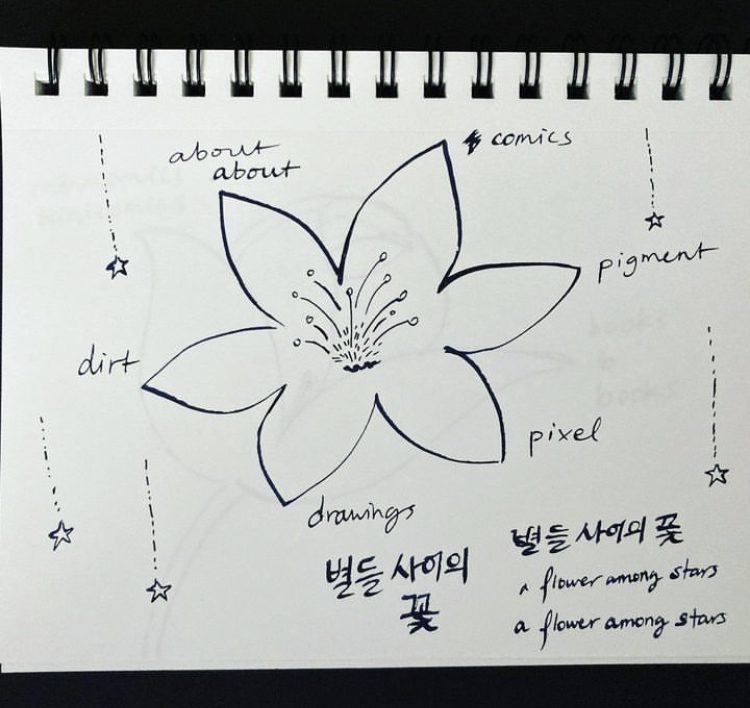 about
about
comics
pigment
dirt
pixel
drawings
별들 사이의
꽃
별들 사이의 꽃
a flower among stars
a flower among stars